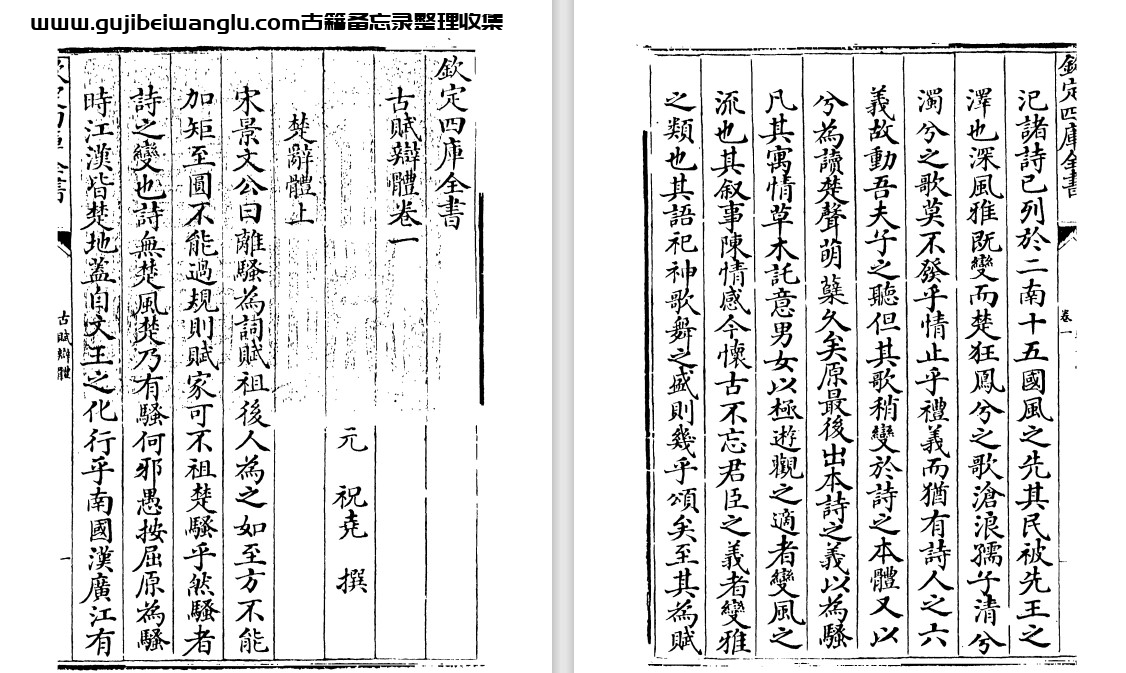 www.gujibeiwanglu.com古籍备忘录整理收集
欽定四庫全書
古賦辯體卷一
元 祝堯 撰
楚辭體上
宋景文公曰離騷為詞賦祖後人為之如至方不能
加矩至圓不能過規則賦家可不祖楚騷乎然騷者
詩之變也詩無楚風楚乃有騷何邪愚按屈原為騷
時江漢皆楚地蓋自文王之化行乎南國漢廣江有
古賦辯體
一
欽定四庫全書
卷一
汜諸詩已列於二南十五國風之先其民被先王之
澤也深風雅既變而楚狂鳳兮之歌滄浪孺子清兮
濁兮之歌莫不發乎情止乎禮義而猶有詩人之六
義故動吾夫子之聽但其歌稍變於詩之本體又以
兮為讀楚聲萌蘖久矣原最後出本詩之義以為騷
凡其寓情草木託意男女以極遊觀之適者變風之
流也其叙事陳情感今懷古不忘君臣之義者變雅
之類也其語祀神歌舞之盛則幾乎頌矣至其為賦